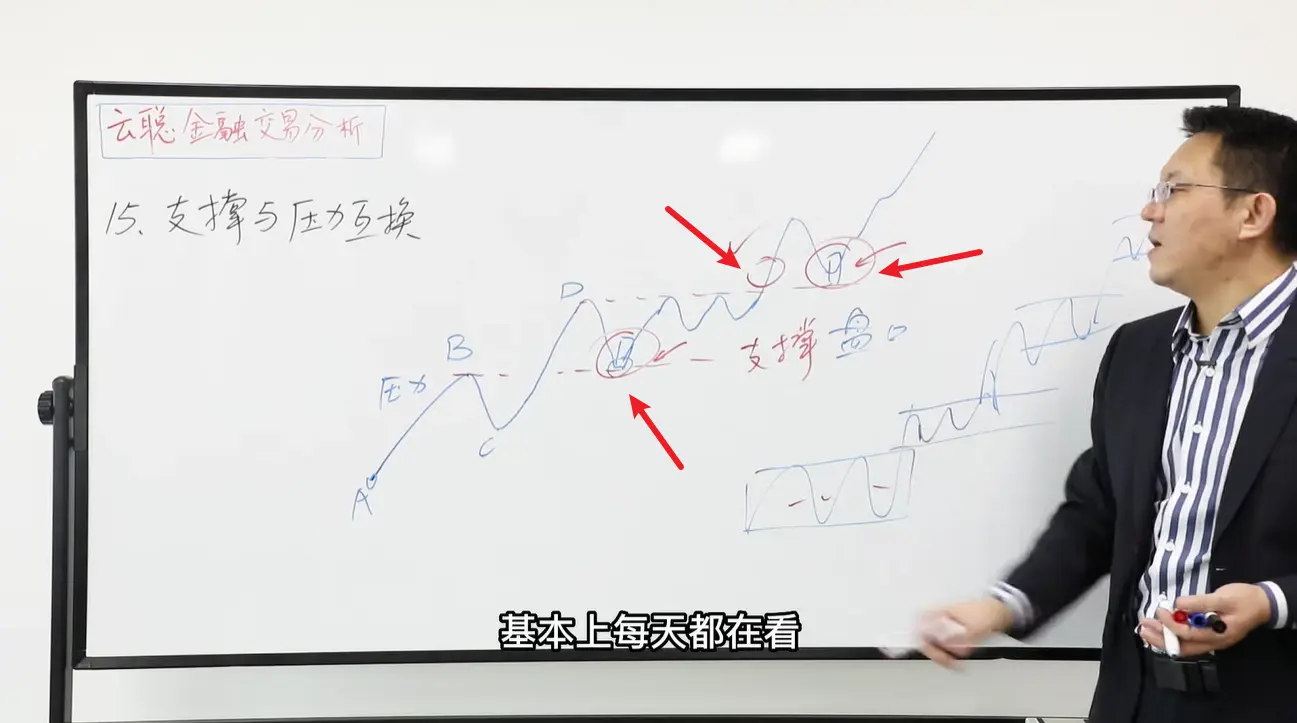 云聪金融交易分析
15、支撑与压力互换
D
B
压力
支撑 盘口
C
A
基本上每天都在看